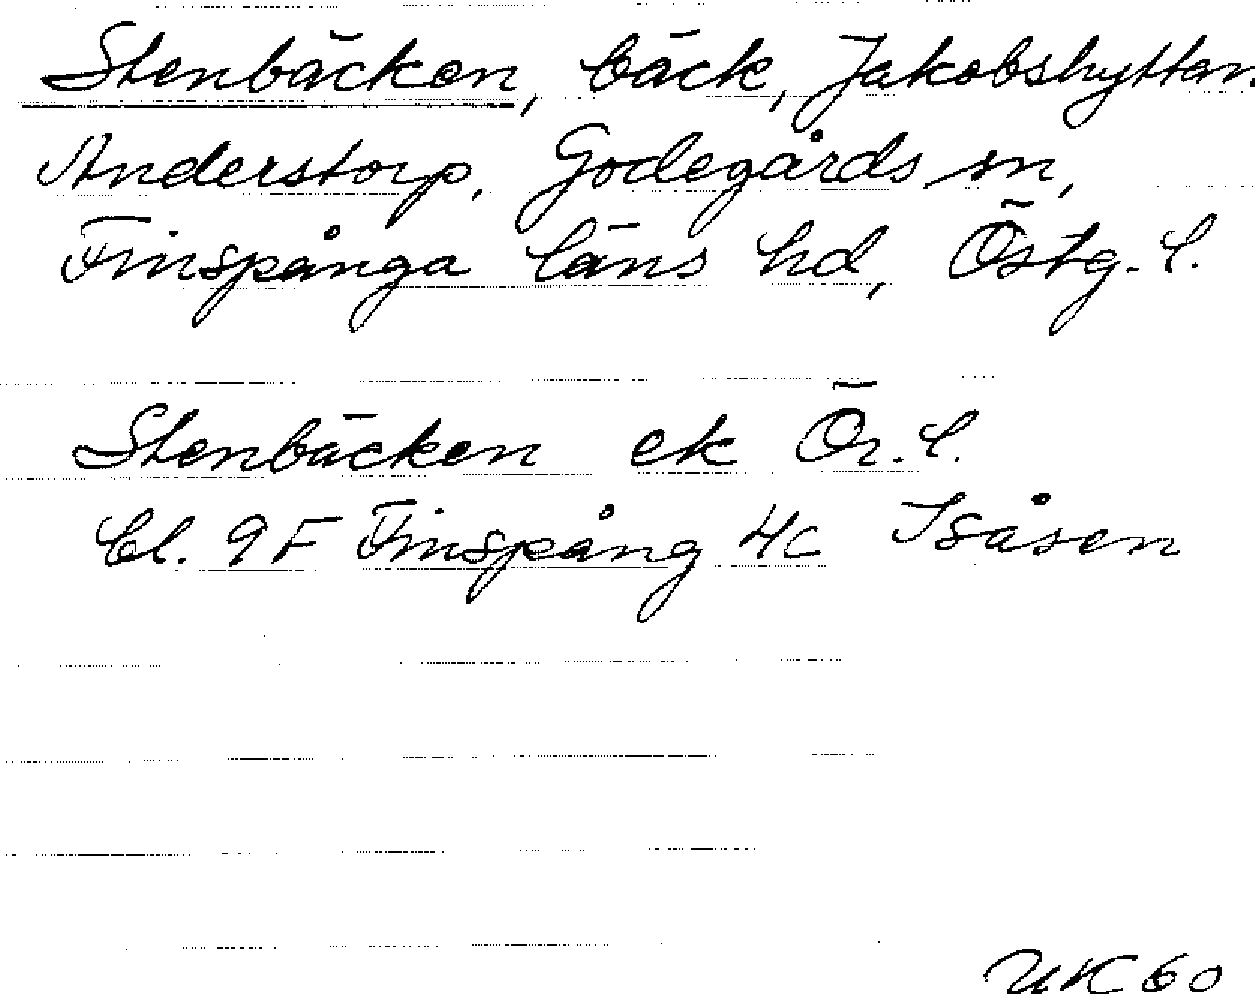 Stenbäcken, bäck, Jakobshyttan
Anderstorp, Godegårds sn,
Finspånga läns hd, Östg. l.
Stenbäcken ek Ör. l.
Bl. 9F Finspång 4c Isåsen
UK 60